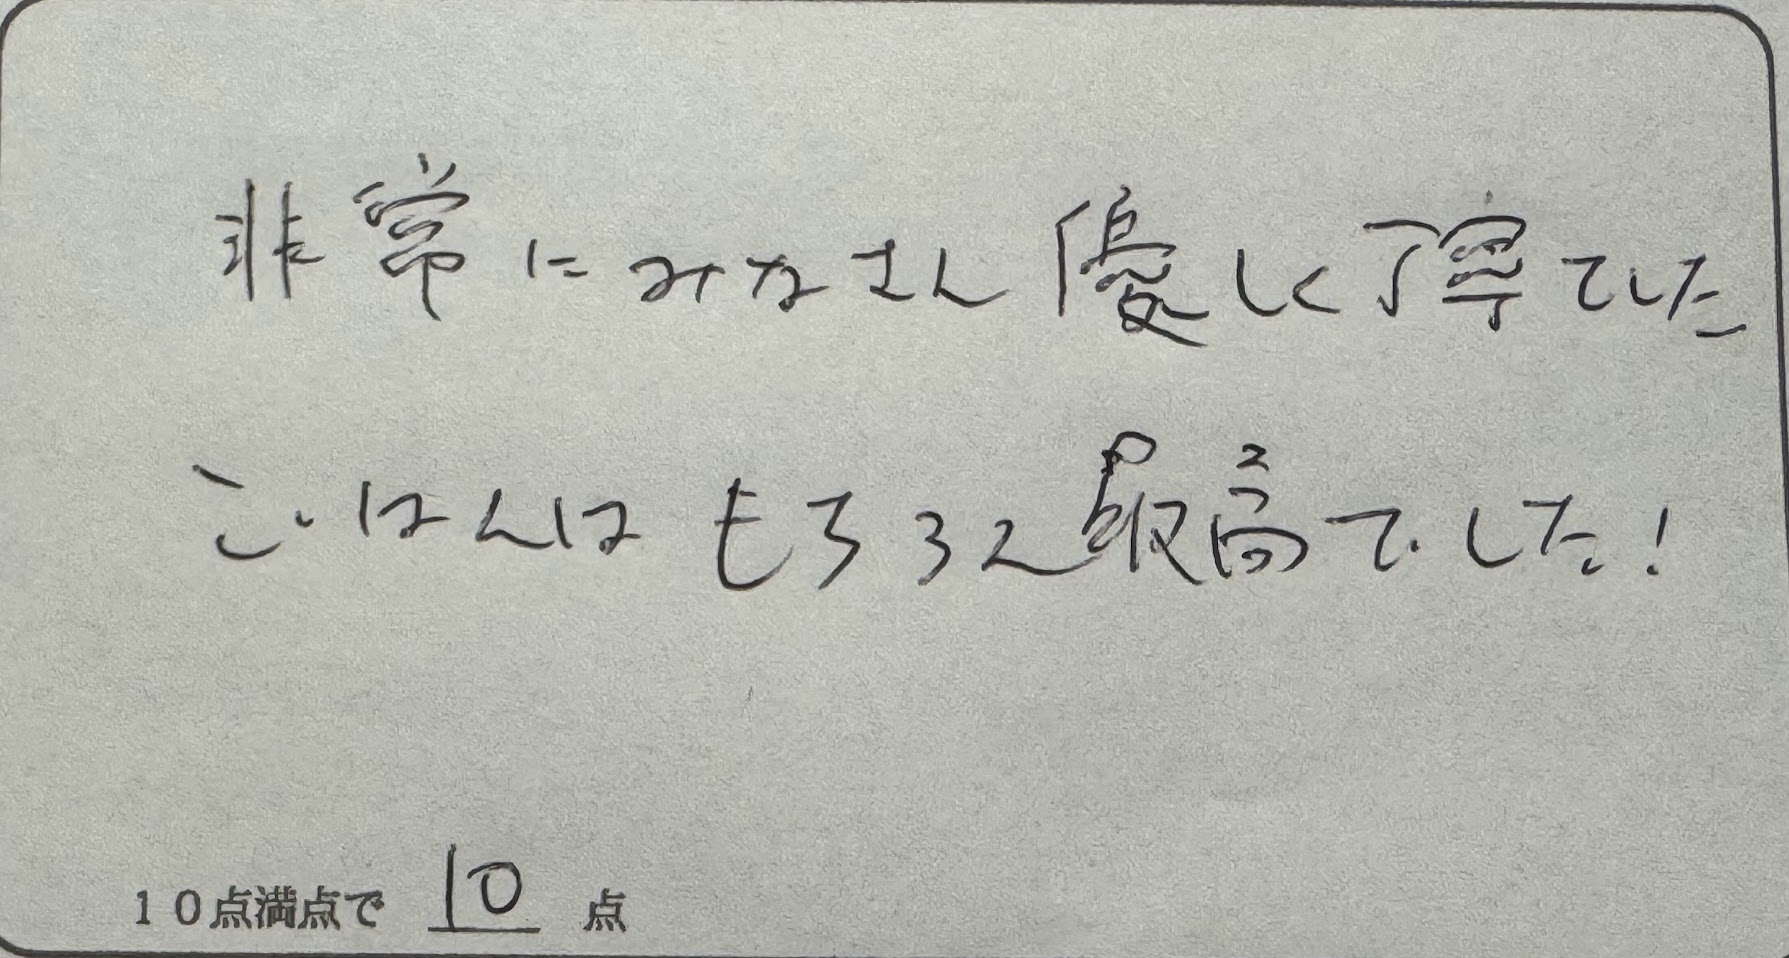 非常にみなさん優しく丁寧でした
ごはんはもちろん最高でした!
10点満点で 10 点